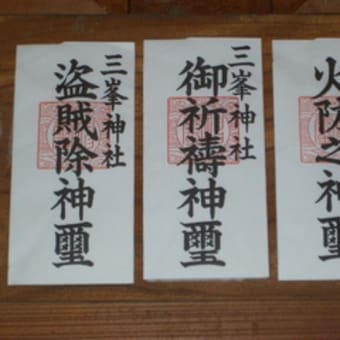 三峯神社
盗賊除神璽
三峯神社
御祈禱神璽
火防之神